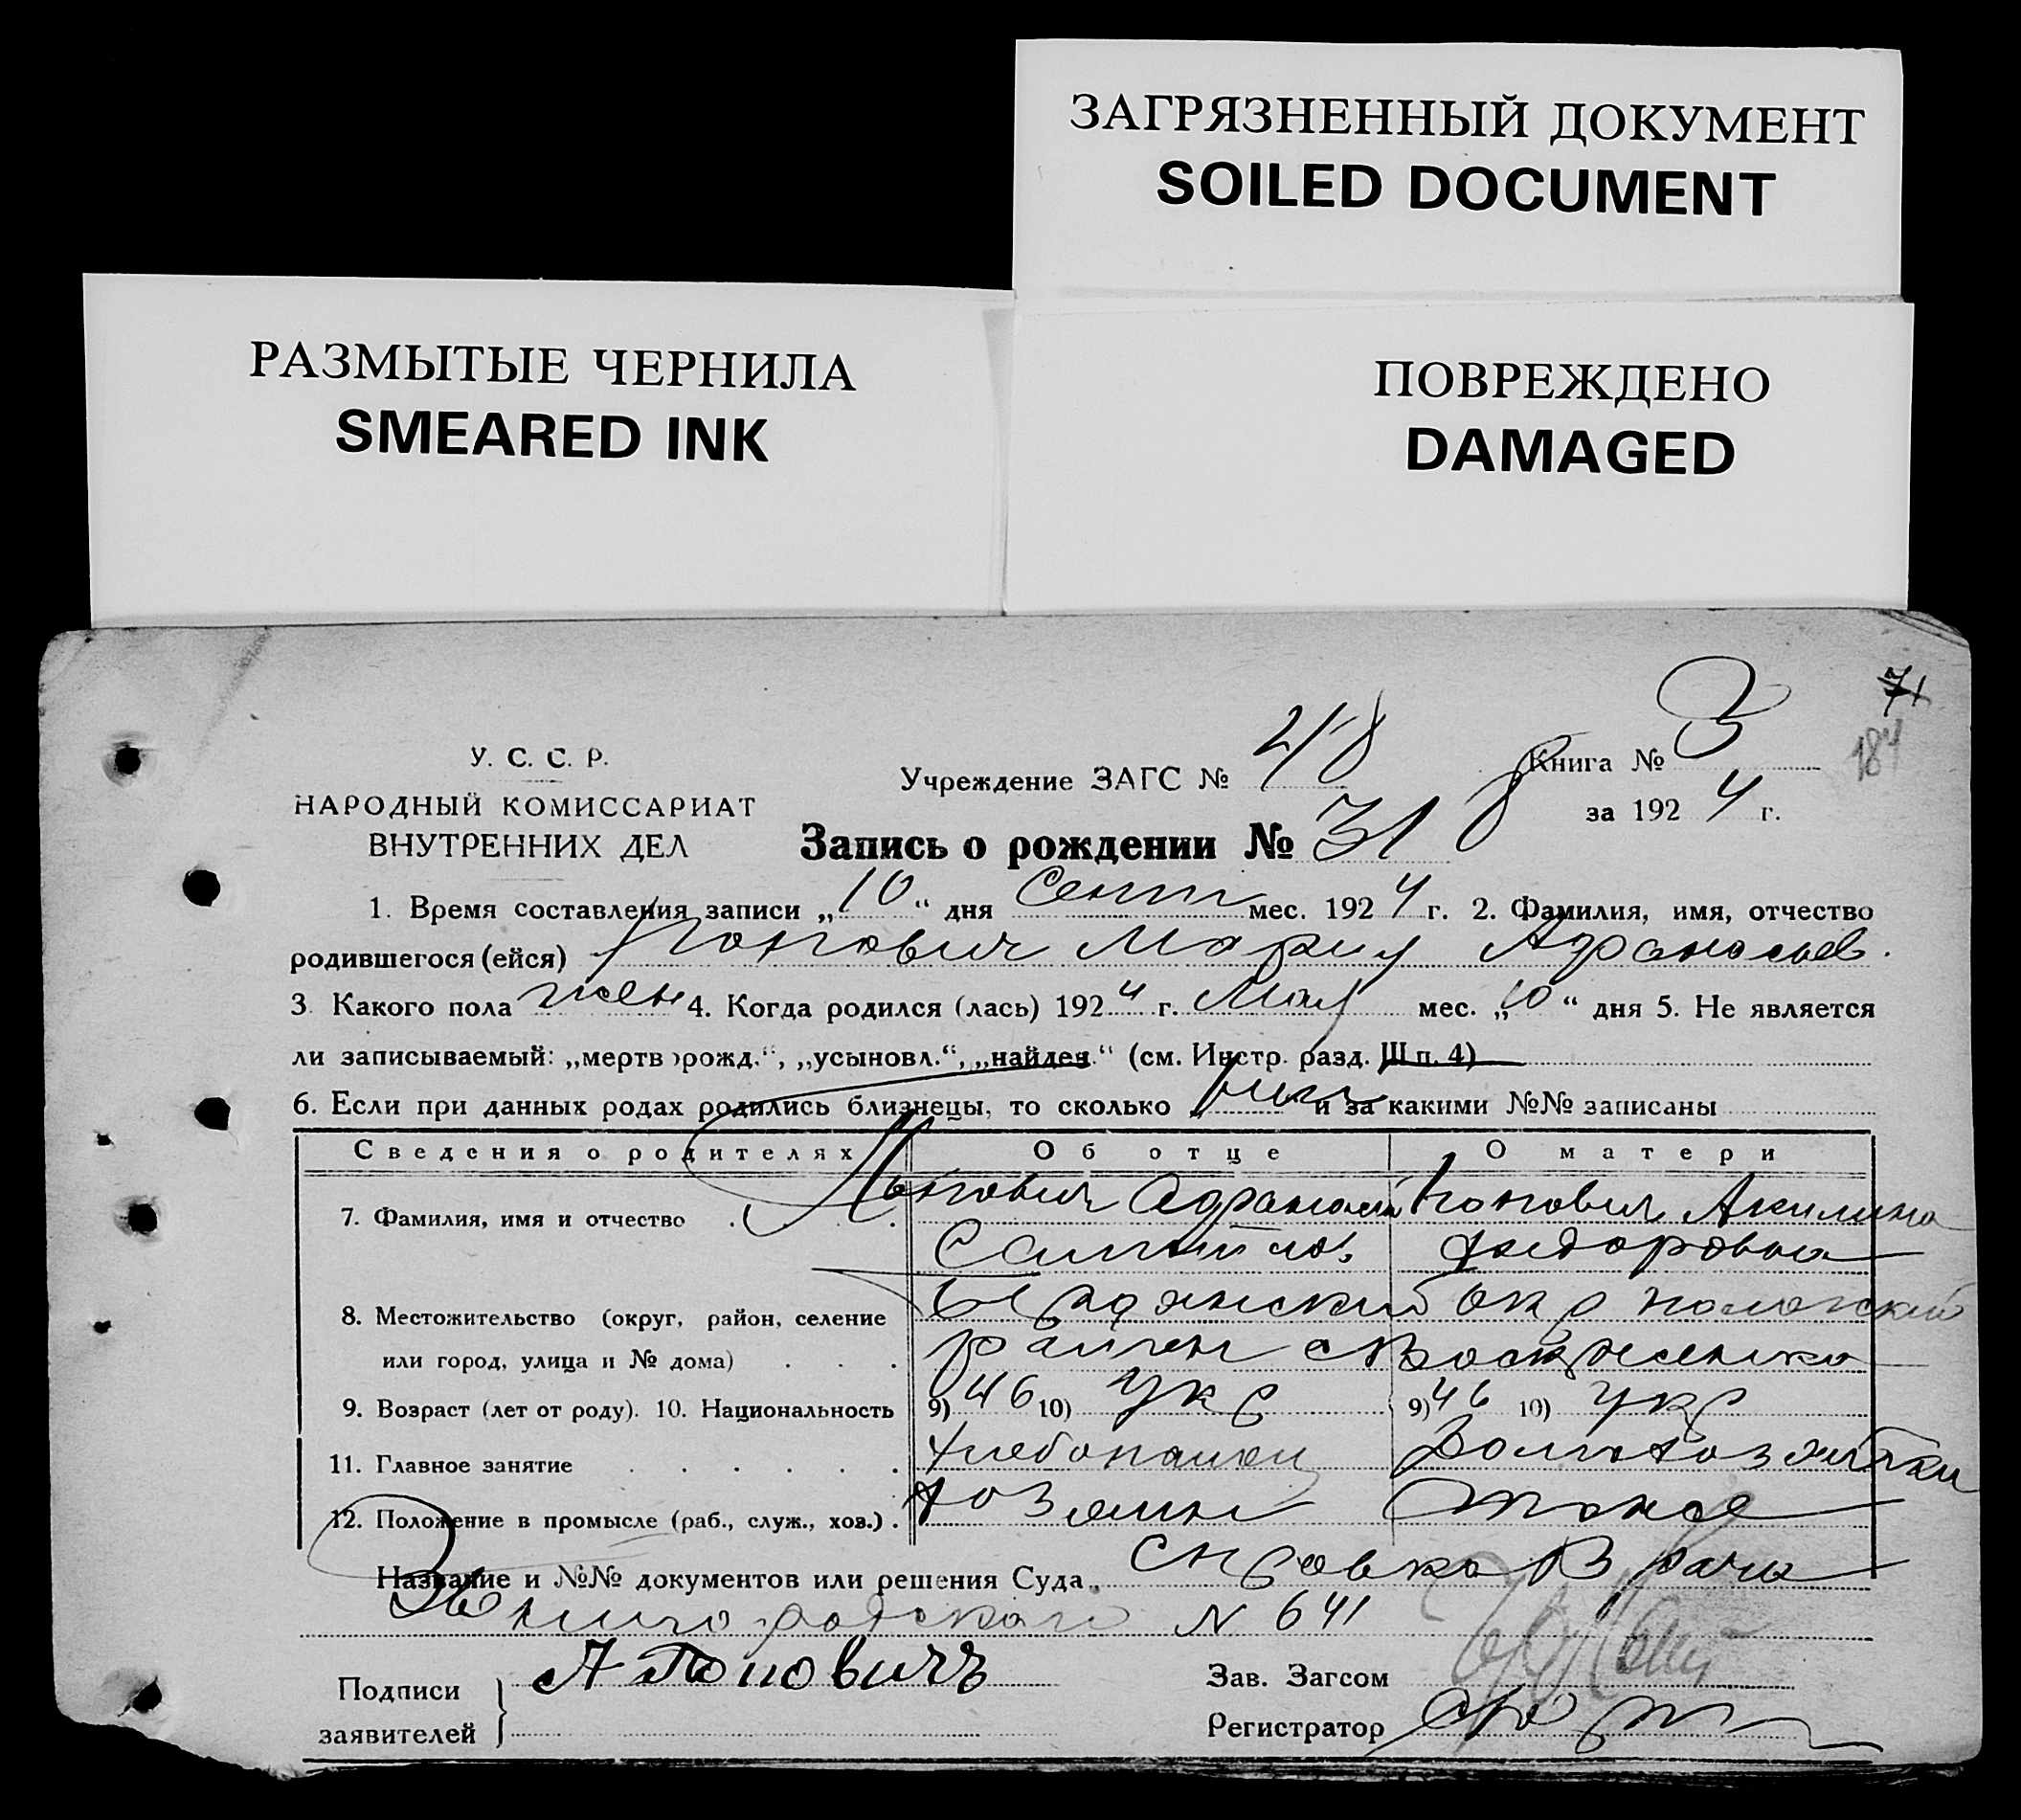 ЗАГРЯЗНЕННЫЙ ДОКУМЕНТ
SOILED DOCUMENT
РАЗМЫТЫЕ ЧЕРНИЛА
SMEARED INK
ПОВРЕЖДЕНО
DAMAGED
71
184
У. С. С. Р.
НАРОДНЫЙ КОМИССАРИАТ
ВНУТРЕННИХ ДЕЛ
Учреждение ЗАГС № 48
Книга № 3
за 1924 г.
Запись о рождении № 318
1. Время составления записи „10“ дня Сент мес. 1924 г. 2. Фамилия, имя, отчество
родившегося (ейся) Попович Мария Афанасьев.
3. Какого пола жен 4. Когда родился (лась) 1924 г. Мая мес. „10“ дня 5. Не является
ли записываемый: „мертворожд.“, „усыновл.“, „найден.“ (см. Инстр. разд. Ш п. 4)
6. Если при данных родах родились близнецы, то сколько и за какими №№ записаны
Сведения о родителях Об отце О матери
7. Фамилия, имя и отчество Попович Афанасий Попович Акилина
Федоровна
8. Местожительство (округ, район, селение Бердянский окр Пологский
или город, улица и № дома) район с Воскресенка
9. Возраст (лет от роду). 10. Национальность 9) 46 10) Укр 9) 46 10) Укр
11. Главное занятие хлебопашец Домохозяйка
12. Положение в промысле (раб., служ., хоз.) хозяин тоже
Название и №№ документов или решения Суда справка Врача
N 641
Подписи
заявителей
А Поповичъ
Зав. Загсом
Регистратор